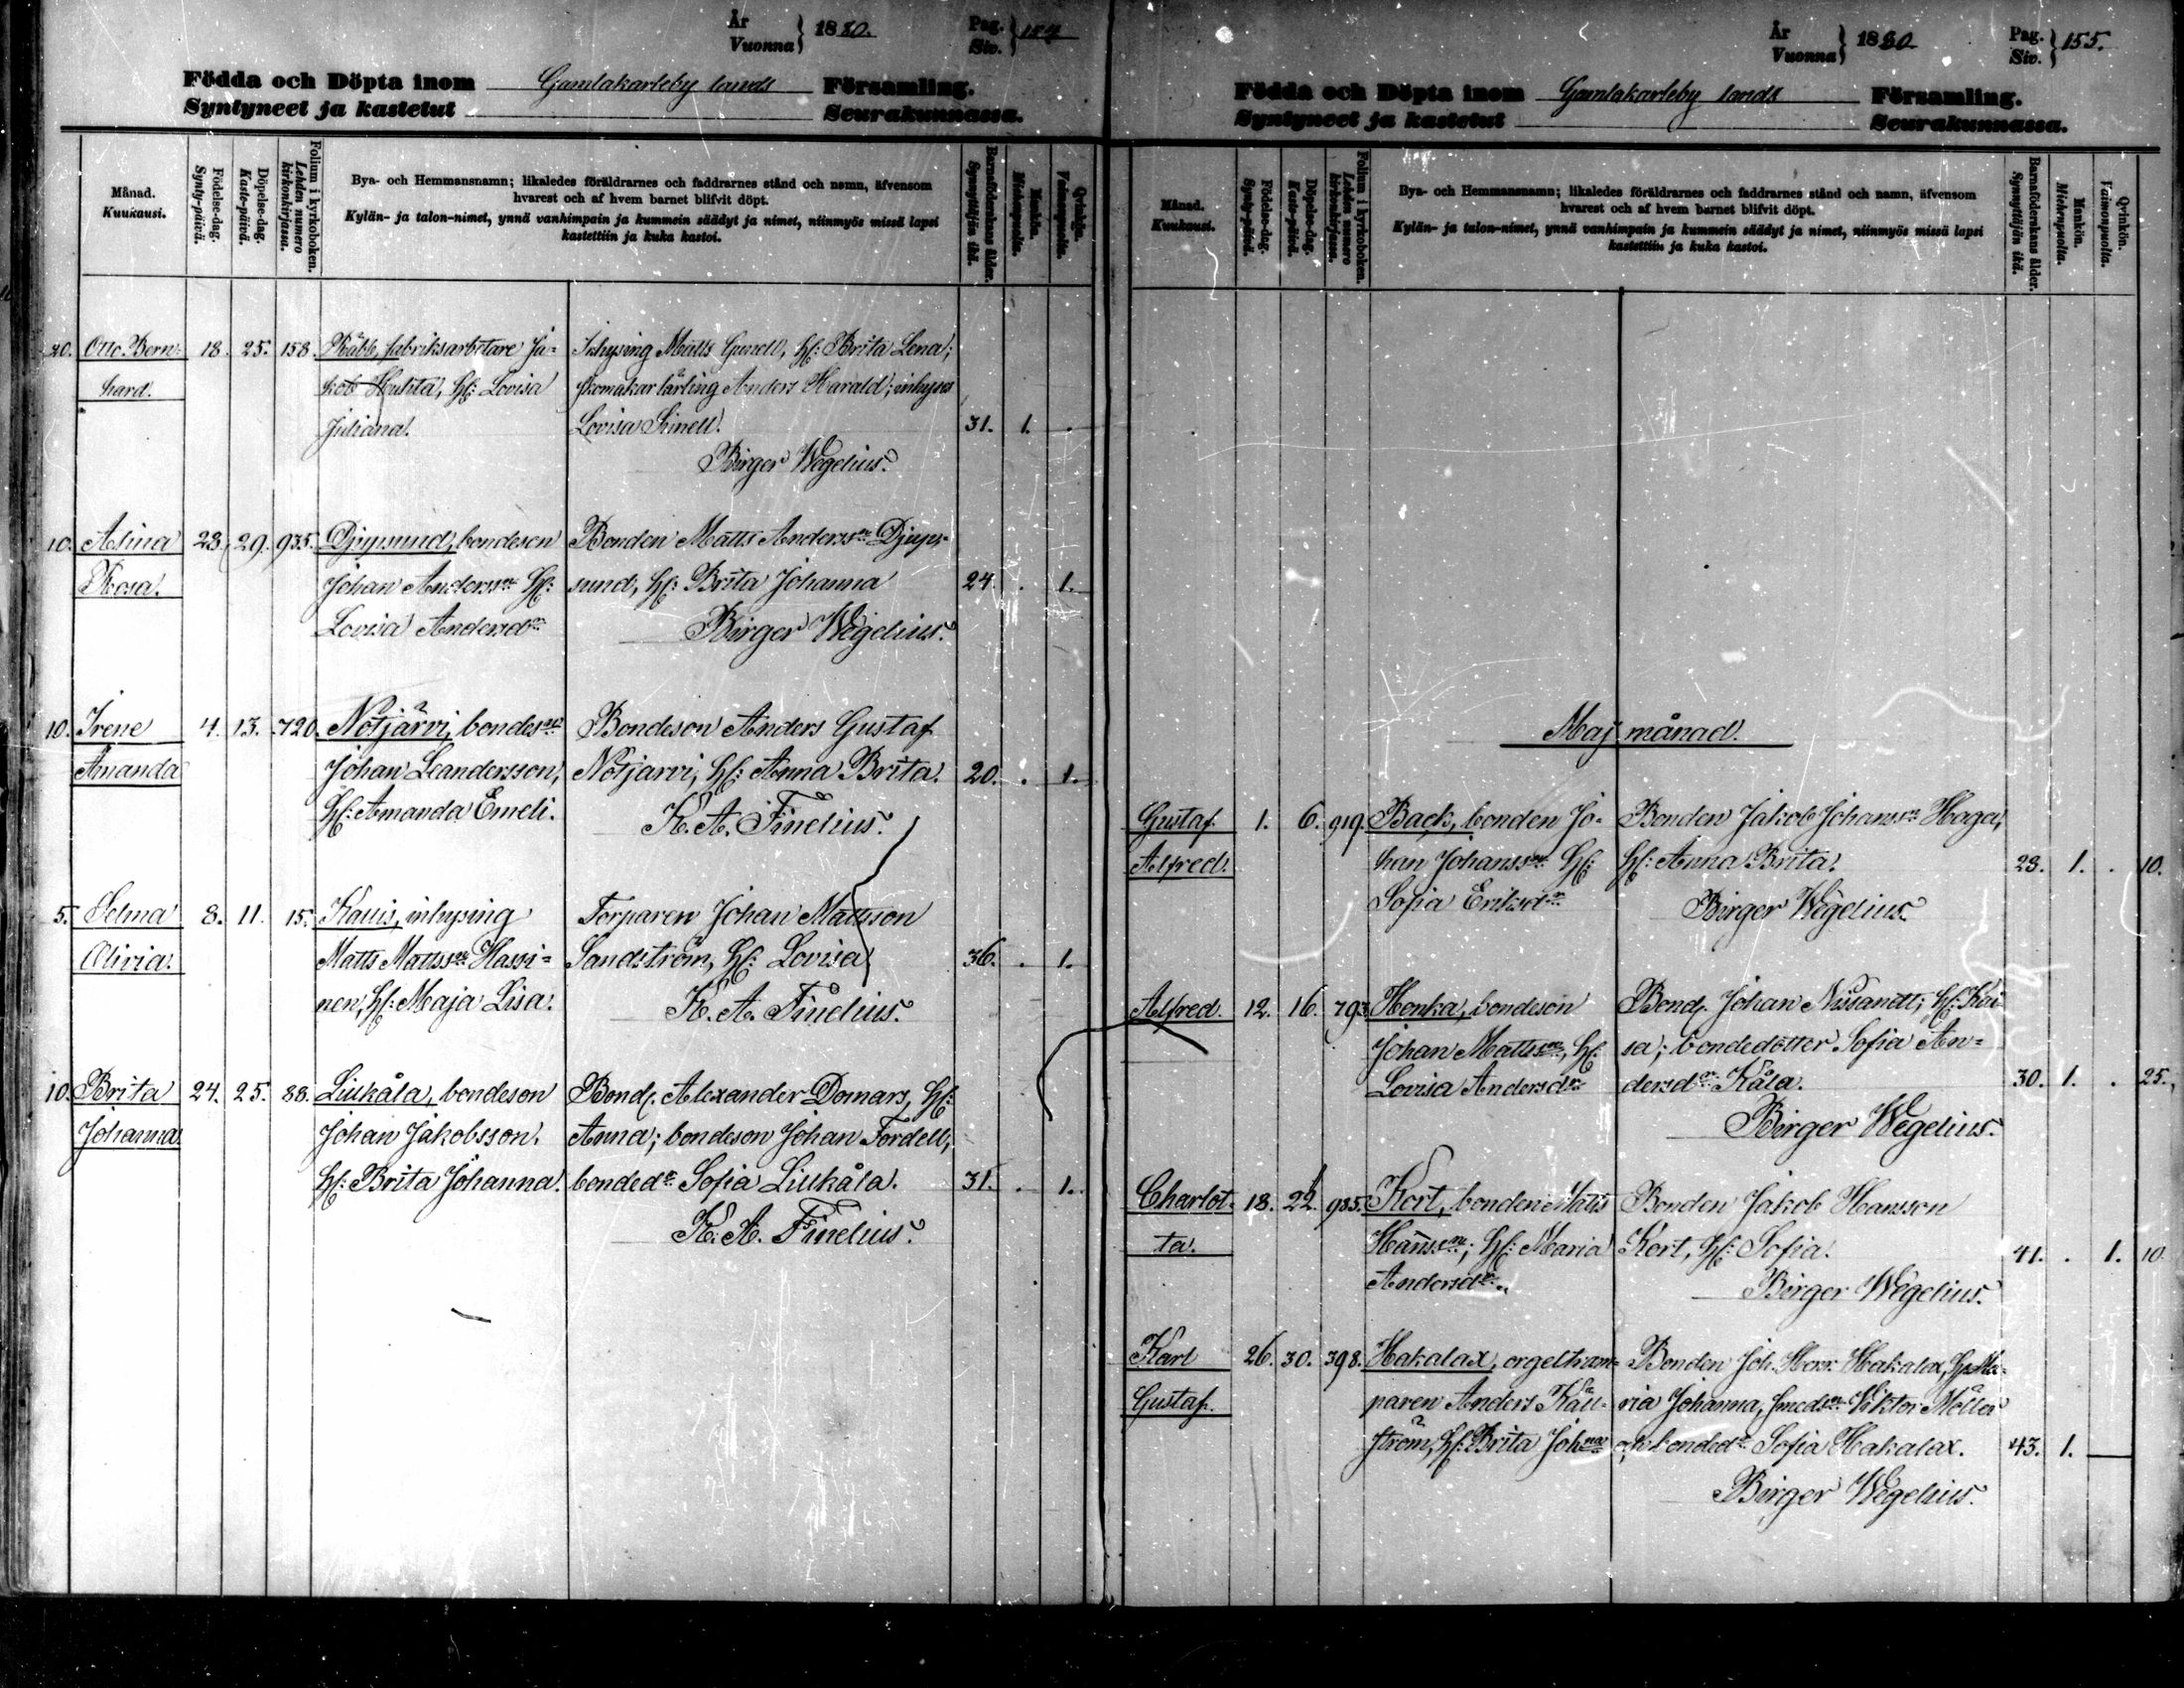 År
Vuonna } 1880.
Pag.
Siv. } 154
Födda och Döpta inom Gamlakarleby lands Församling.
Syntyneet ja kastetut Seurakunnassa.
Månad.
Kuukausi.
Födelse-dag.
Synty-päivä.
Döpelse-dag.
Kaste-päivä.
Folium i kyrkoboken.
Lehden numero
kirkonkirjassa.
Bya- och Hemmansnamn; likaledes föräldrarnes och faddrarnes stånd och namn, äfvensom
hvarest och af hvem barnet blifvit döpt.
Kylän- ja talon-nimet, ynnä vanhimpain ja kummein säädyt ja nimet, niinmyös missä lapsi
kastettiin ja kuka kastoi.
Barnaföderskans ålder.
Synnyttäjän ikä.
Mankön.
Miehenpuolta.
Qvinkön.
Vaimonpuolta.
20. Otto Bern- 18. 25. 158. Råbb, fabriksarbetare Ja- Inhysing Matts Gunell, h: Brita Lena;
hard. kob Huhta, h: Lovisa skomakar lärling Anders Harald; inhyses
Juliana. Lovisa Sinell. 31. 1. .
Birger Wegelius.
10. Alina 23. 29. 935. Djupsund, bondeson Bonden Matts Anderssn Djups-
Rosa. Johan Anderssn h: sund, h: Brita Johanna 24. . 1.
Lovisa Andersdr Birger Wegelius.
10. Irene 4. 13. 720. Nötjärvi, bondesn Bondeson Anders Gustaf
Amanda Johan Leandersson, Nötjärvi, h: Anna Brita. 20. . 1.
h: Amanda Emeli. K. A. Finelius.
5. Selma 8. 11. 15. Kallis, inhysing Torparen Johan Mattsson
Olivia. Matts Mattssn Hassi- Sandström, h: Lovisa 36. . 1.
nen, h: Maja Lisa. K. A. Finelius.
10. Brita 24. 25. 88. Liukåla, bondeson Bond. Alexander Domars, h:
Johanna Johan Jakobsson. Anna; bondeson Johan Fordell,
h: Brita Johanna. bondedr Sofia Liukåla. 31. . 1.
K. A. Finelius.
År
Vuonna } 1880
Pag.
Siv. } 155.
Födda och Döpta inom Gamlakarleby lands Församling.
Syntyneet ja kastetut Seurakunnassa.
Månad.
Kuukausi.
Födelse-dag.
Synty-päivä.
Döpelse-dag.
Kaste-päivä.
Folium i kyrkoboken.
Lehden numero
kirkonkirjassa.
Bya- och Hemmansnamn; likaledes föräldrarnes och faddrarnes stånd och namn, äfvensom
hvarest och af hvem barnet blifvit döpt.
Kylän- ja talon-nimet, ynnä vanhimpain ja kummein säädyt ja nimet, niinmyös missä lapsi
kastettiin ja kuka kastoi.
Barnaföderskans ålder.
Synnyttäjän ikä.
Mankön.
Miehenpuolta.
Qvinkön.
Vaimonpuolta.
Maj månad.
Gustaf 1. 6. 919. Back, bonden Jo- Bonden Jakob Johanssn Haga,
Alfred. han Johanssn h: h: Anna Brita. 23. 1. . 10.
Sofia Eriksdr Birger Wegelius.
Alfred. 12. 16. 793 Honka, bondeson Bond. Johan Nissanett; h: Kai
Johan Mattssn, h: sa; bondedotter Sofia An-
Lovisa Andersdr dersdr Kåla. 30. 1. . 25.
Birger Wegelius.
Charlot- 18. 22. 985. Kort, bonden Matts Bonden Jakob Hansson
ta. Hanssn; h: Maria Kort, h: Sofia. 41. . 1. 10.
Andersdr. Birger Wegelius.
Karl 26. 30. 398. Hakalax, orgeltram- Bonden Joh. Herr. Hakalax, h: Ma-
Gustaf. paren Anders Käll- ria Johanna, smedsn Viktor Möller
ström, h: Brita Johna och bondedr Sofia Hakalax. 43. 1.
Birger Wegelius.